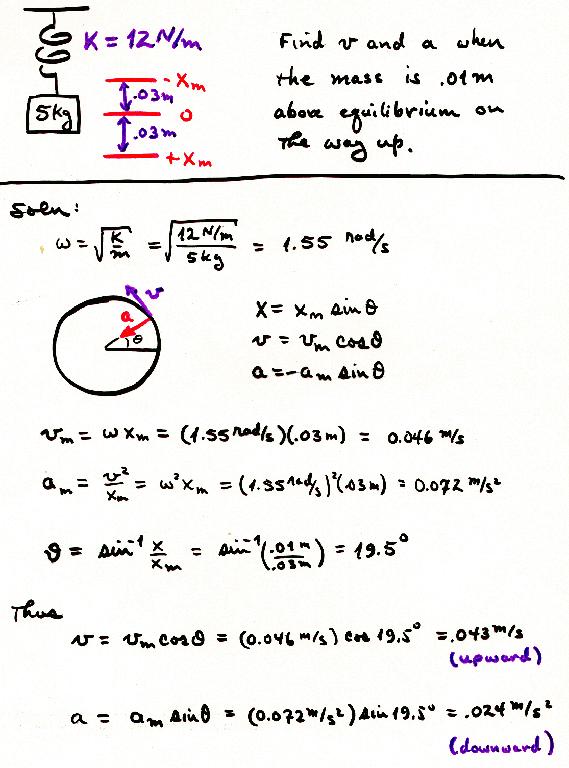 K = 12 N/m
Find v and a when
the mass is .01m
above equilibrium on
the way up.
5kg
- Xm
.03m
0
.03m
+Xm
Soln:
ω = √(K/m) = √(12 N/m / 5 kg) = 1.55 rad/s
v
a
θ
X = xm sin θ
v = vm cos θ
a = -am sin θ
vm = ω xm = (1.55 rad/s)(.03m) = 0.046 m/s
am = v²/xm = ω² xm = (1.55 rad/s)²(.03m) = 0.072 m/s²
θ = sin⁻¹ x/xm = sin⁻¹(.01m/.03m) = 19.5°
Thus
v = vm cos θ = (0.046 m/s) cos 19.5° = .043 m/s
(upward)
a = am sin θ = (0.072 m/s²) sin 19.5° = .024 m/s²
(downward)